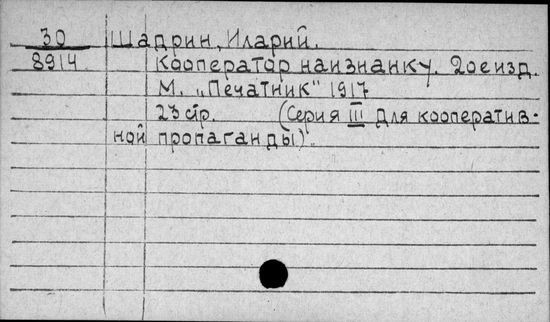 30 Шадрин, Иларий.
8914 Кооператор наизнанку. 2ое изд.
М. „Печатник" 1917
23 стр. (Серия III Для кооператив-
ной пропаганды).